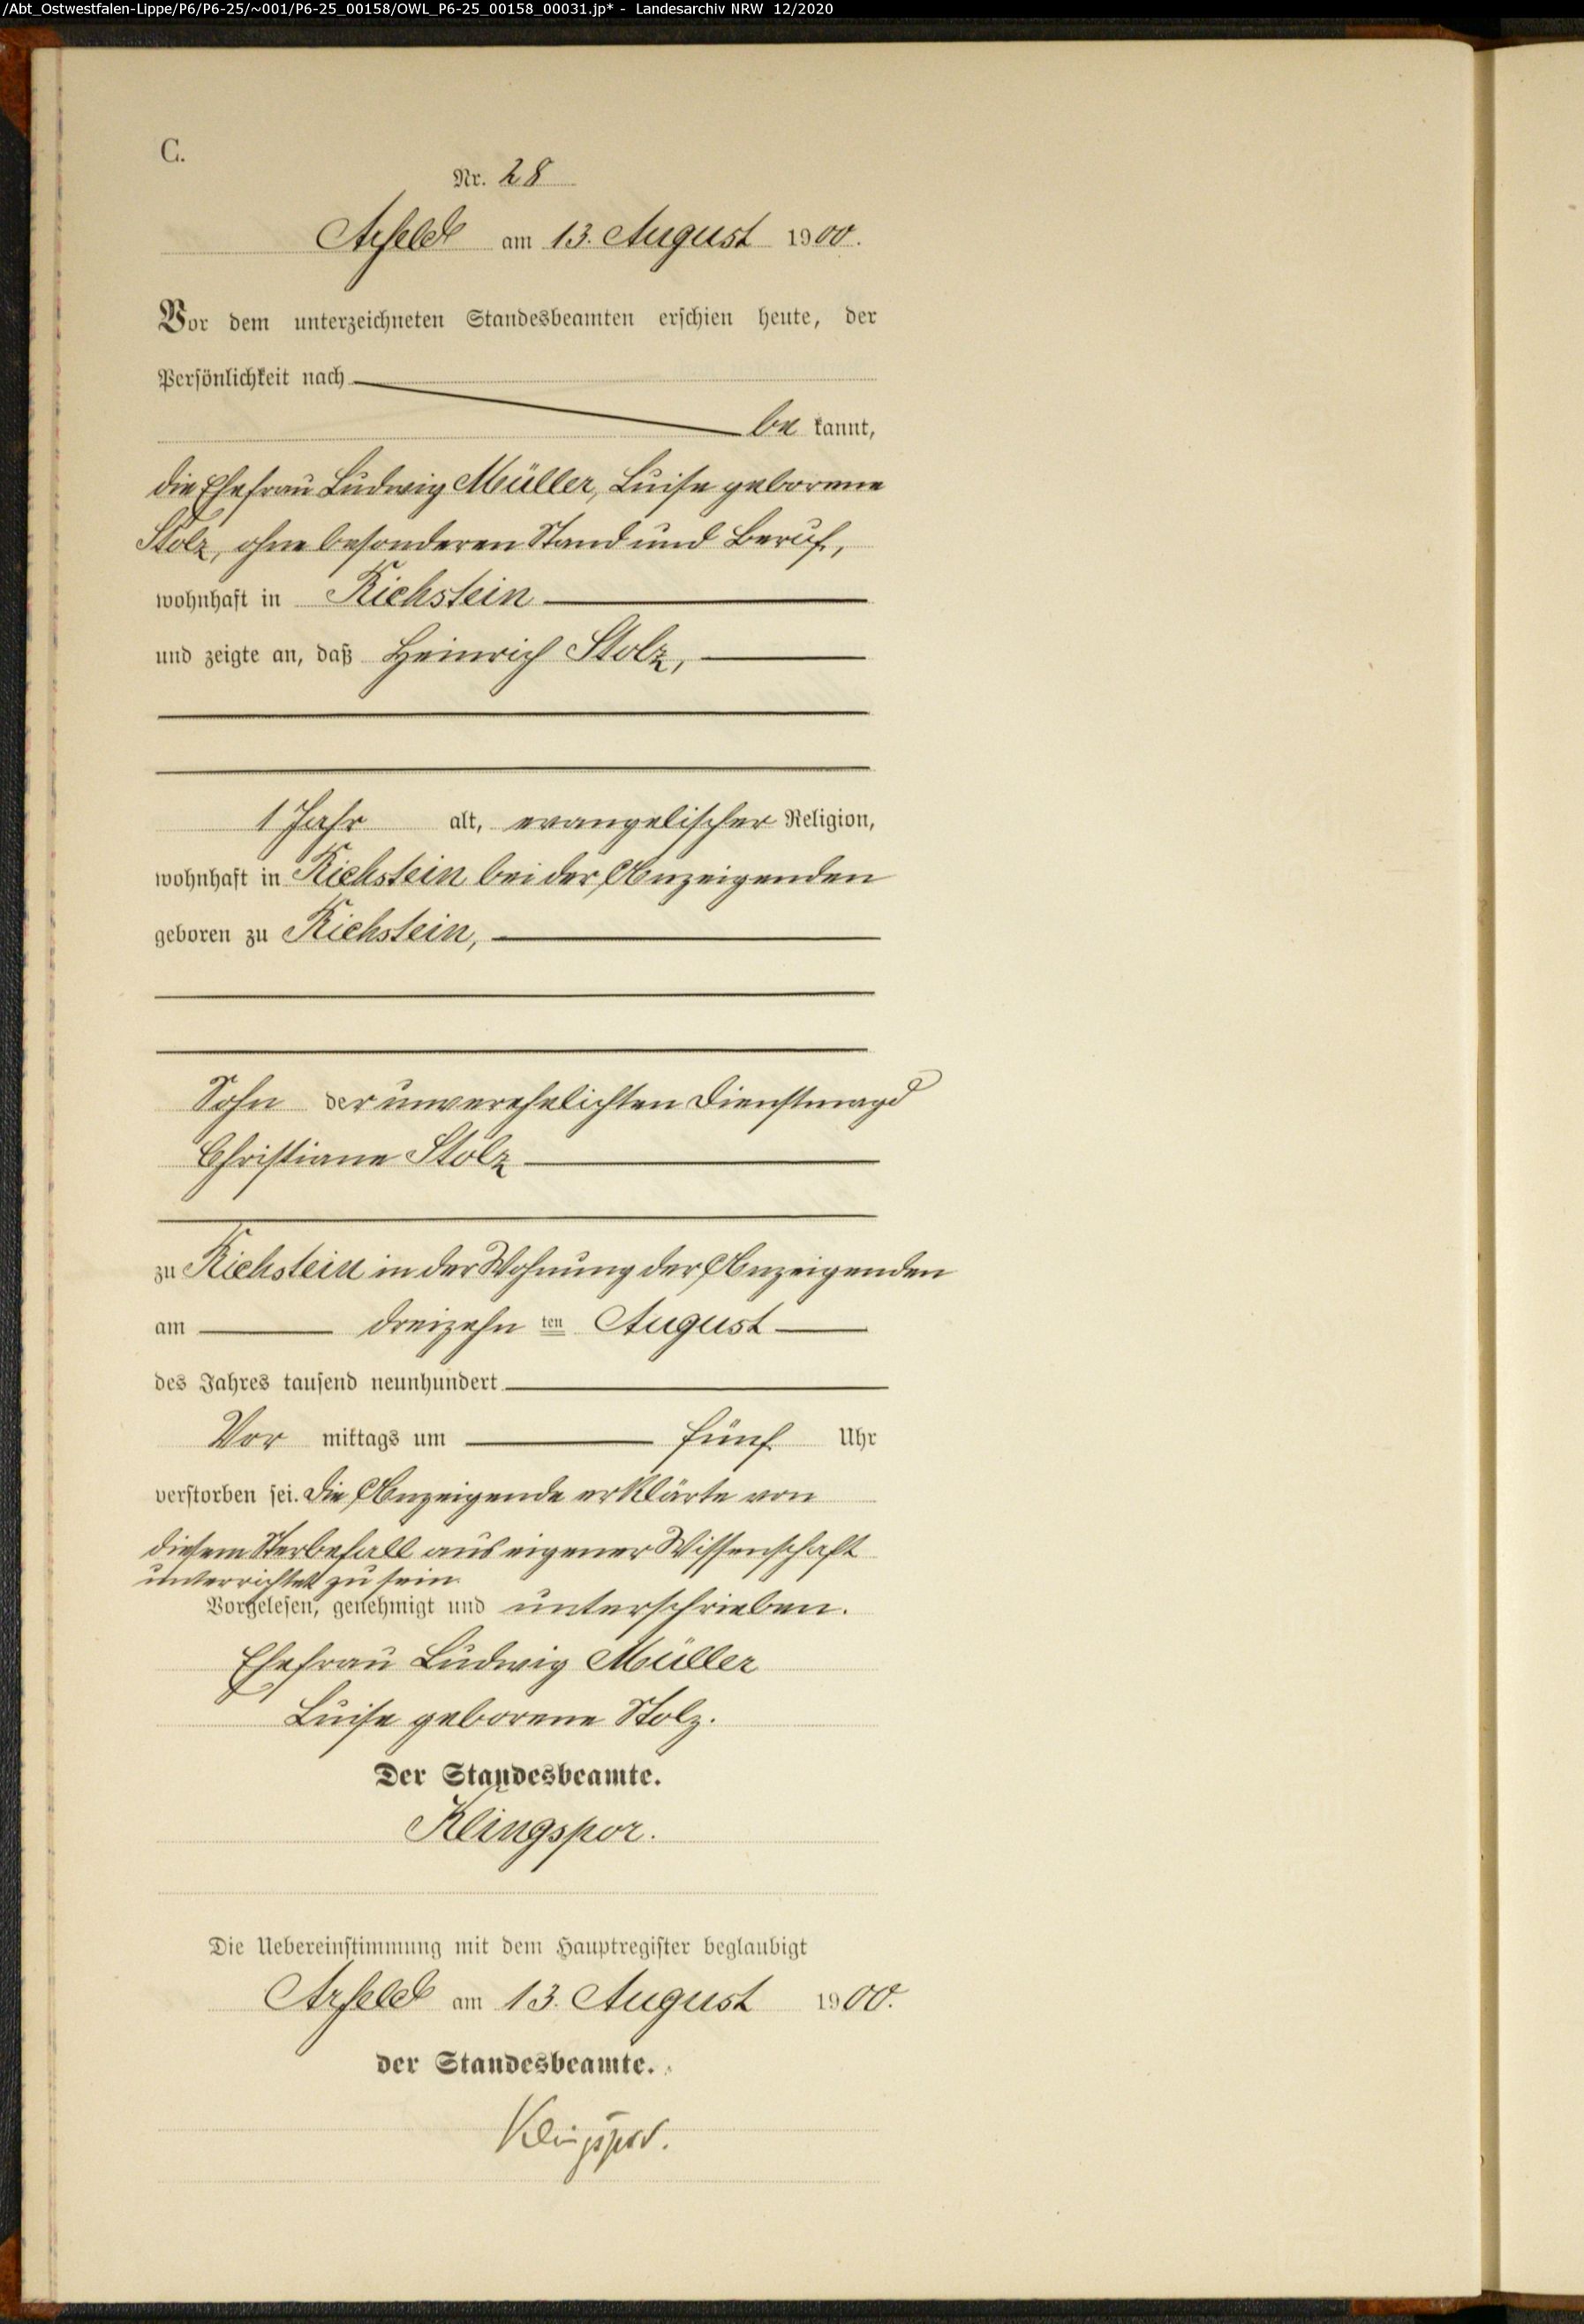 /Abt_Ostwestfalen-Lippe/P6/P6-25/~001/P6-25_00158/OWL_P6-25_00158_00031.jp* - Landesarchiv NRW 12/2020
C.
Nr. 28
Arfeld am 13. August 1900.
Vor dem unterzeichneten Standesbeamten erschien heute, der
Persönlichkeit nach
be kannt,
die Ehefrau Ludwig Müller, Luise geborene
Stolz, ohne besonderen Stand und Beruf,
wohnhaft in Richstein
und zeigte an, daß Heinrich Stolz,
1 Jahr alt, evangelischer Religion,
wohnhaft in Richstein bei der Anzeigenden
geboren zu Richstein,
Sohn der unverehelichten Dienstmagd
Christiane Stolz
zu Richstein in der Wohnung der Anzeigenden
am dreizehn ten August
des Jahres tausend neunhundert
Vor mittags um fünf Uhr
verstorben sei. Die Anzeigende erklärte von
diesem Sterbefall aus eigener Wissenschaft
unterrichtet zu sein.
Vorgelesen, genehmigt und unterschrieben.
Ehefrau Ludwig Müller
Luise geborene Stolz.
Der Standesbeamte.
Klingspor.
Die Uebereinstimmung mit dem Hauptregister beglaubigt
Arfeld am 13. August 1900.
der Standesbeamte.
Klingspor.